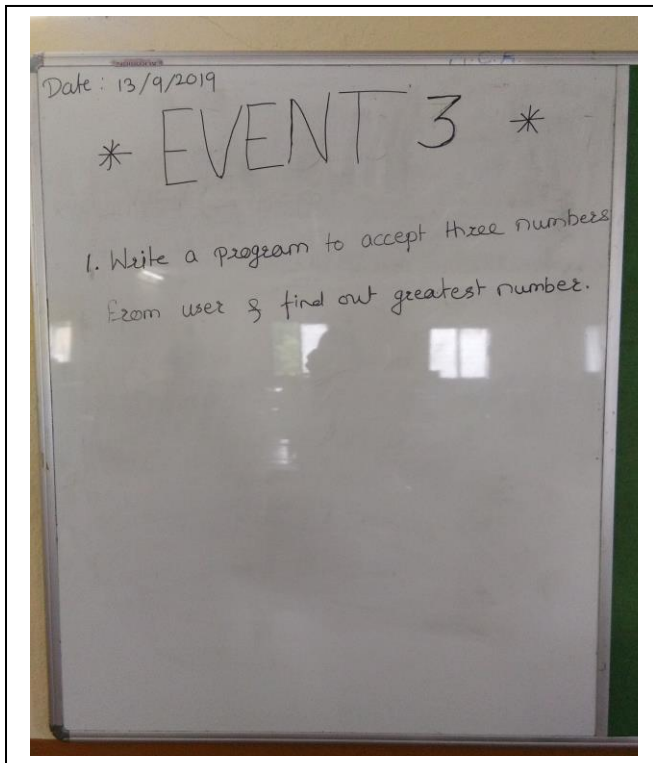 Date : 13/9/2019
* EVENT 3 *
1. Write a program to accept three numbers
from user & find out greatest number.